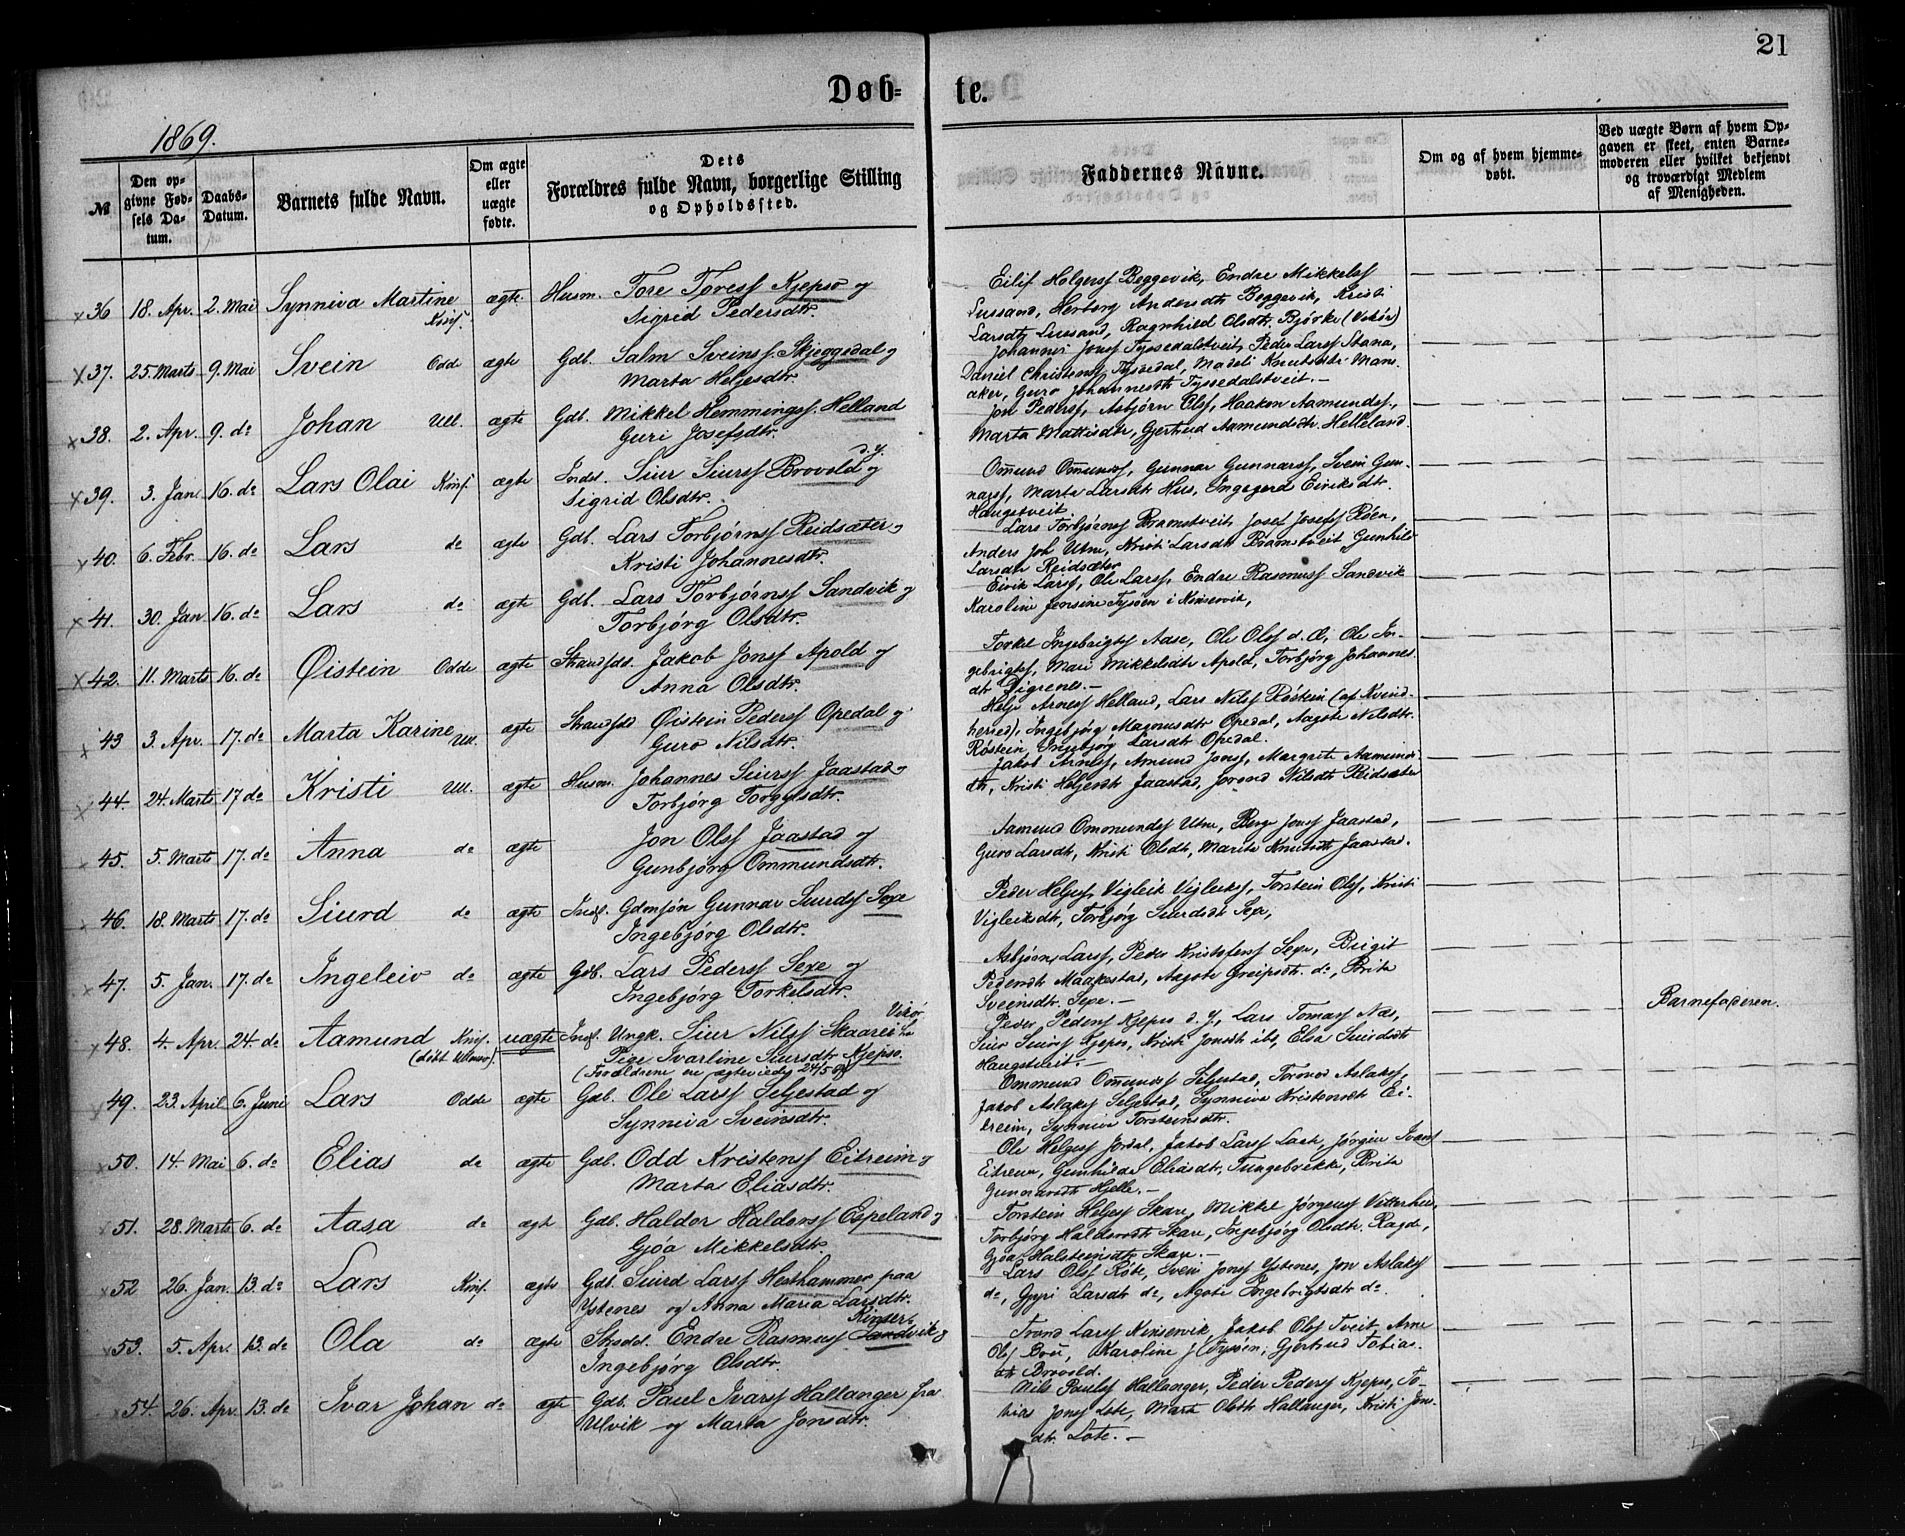 21
Døb-
te.
1869.
№
Den op-
givne Fød-
sels Da-
tum.
Daabs-
Datum.
Barnets fulde Navn.
Om ægte
eller
uægte
fødte.
Dets
Forældres fulde Navn, borgerlige Stilling
og Opholdssted.
Faddernes Navne.
Om og af hvem hjemme-
døbt.
Ved uægte Børn af hvem Op-
gaven er skeet, enten Barne-
moderen eller hvilket bekjendt
og troværdigt Medlem
af Menigheden.
36 18. Apr. 2. Mai Synniva Martine Kinsf. ægte Husm. Tore Toresf Kjepso og
Sigrid Pedersdtr.
Eilif Helgesf Beggevik, Endre Mikkelsf
Lussand, Herborg Andersdtr Beggevik, Kristi
Larsdtr Lussand, Ragnhild Olsdtr. Bjørke (Vikør)
37. 25. Marts 9. Mai Svein Odde ægte Gdb. Salm Sveinsf. Skjeggedal og
Marta Helgesdtr.
Johannes Jonsf Tyssedalstveit, Peder Larsf Stana,
Daniel Christensf Tyssedal, Madeli Knutsdtr Man-
aker, Guro Johannesdtr Tyssedalstveit.-
38. 2. Apr. 9. do Johan Ull. ægte Gdb. Mikkel Hemmingsf. Helland
Guri Josefsdtr.
Jon Pedersf, Asbjørn Olsf, Haakon Aamundsf.,
Marta Mattisdtr, Gjertrud Aamundsdtr Helleland.
39. 3. Jan. 16. do Lars Olai Kinsf. ægte Indst. Siur Siursf Brovold d.y. og
Sigrid Olsdtr.
Omund Omundsf, Gunnar Gunnarsf, Svein Gun-
narsf, Marta Larsdtr Hus, Ingegerd Eiriksdtr.
Haugstveit.
40. 6. Febr. 16. do Lars do ægte Gdb. Lars Torbjørnsf Reidsæter og
Kristi Johannesdtr.
Lars Torbjørnsf Bramstveit, Josef Josefsf Røen,
Anders Joh Utne, Kristi Larsdtr Bramstveit Gunhild
Larsdtr Reidsæter
41. 30. Jan 16. do Lars do ægte Gdb. Lars Torbjørnsf Sandvik og
Torbjørg Olsdtr.
Eirik Larsf, Ole Larsf, Endre Rasmusf Sandvik
Karoline Jensine Tysøen i Kinservik,
42. 11. Marts 16. do Øistein Odde ægte Strandsds. Jakob Jonsf Apold og
Anna Olsdtr.
Torkel Ingebrigtsf Aase, Ole Olsf d. Æ, Ole In-
gebrigtsf, Mari Mikkelsdtr Apold, Torbjørg Johannes.
dtr Digrenes.-
43 3. Apr. 17. do Marta Karine Ull. ægte Strandsd Øistein Pedersf Opedal og
Guro Nilsdtr.
Helje Arnesf Helland, Lars Nilsf Røstein (af Kvind-
herred), Ingebjørg Magnusdtr Opedal, Aagote Nilsdtr.
Røstein, Ingebjørg Larsdtr Opedal.
44. 24. Marts 17 do Kristi Ull. ægte Husm. Johannes Siursf Jaastad og
Torbjørg Torgylsdtr.
Jakob Arnesf, Amund Jonsf, Margrete Aamunds-
dtr, Kristi Heljesdtr Jaastad, Jorond Nilsdtr Reidsæter
45. 5. Marts 17. do Anna do ægte Jon Olsf Jaastad og
Gunbjørg Ommundsdtr.
Aamund Ommundsf Utne, Berge Jonsf Jaastad,
Guro Larsdtr, Kristi Olsdtr, Marita Knutsdtr Jaastad.
46. 18. Marts 17. do Siurd do ægte Indf. Gdmsøn Gunnar Siurdsf Sexe
Ingebjørg Olsdtr.
Peder Helgesf, Vigleik Vigleiksf, Torstein Olsf, Kristi
Vigleiksdtr, Torbjørg Siurdsdtr Sexe,
47. 5. Jan. 17. do Ingeleiv do ægte Gdb. Lars Pedersf Sexe og
Ingebjørg Torkelsdtr.
Asbjørn Larsf, Peder Kristofersf Sexe, Brigit
Pedersdtr Maakestad, Aagote Greipsdtr. do, Brita
Sveinsdtr. Sexe.-
48. 4. Apr. 24. do Aamund Kinsf. (døbt Ullensv). uægte Indf. Ungk. Siur Nilsf Skaare i Vikør
Pige Ivarline Siursdtr Kjepso.
(Forældrene er ægteviedes 24/5 69)
Peder Pedersf Kjepso d. y., Lars Tomasf Næs,
Siur Siursf Kjepso, Kristi Jonsdtr ibd, Elsa Siursdtr
Haugstveit.-
Barnefaderen.
49. 23. April 6. Juni Lars Odde ægte Gdb. Ole Larsf Seljestad og
Synneva Sveinsdtr.
Ommund Omundsf Seljestad, Tormod Aslaksf,
Jakob Aslaksf Seljestad, Synniva Kristensdtr Ei-
treim, Synniva Torsteinsdtr.
50. 14. Mai 6. do Elias do ægte Gdb. Odd Kristensf Eitreim og
Marta Eliasdtr.
Ole Helgesf Jordal, Jakob Larsf Laat, Jørgen Ivarsf
Eitreim, Gunhilda Eliasdtr, Tungebrekke, Brita
Gunnarsdtr Hjelle.-
51. 28. Marts 6. do Aasa do ægt Gdb. Haldor Haldorsf Espeland og
Gjøa Mikkelsdtr.
Torstein Heljesf Skare, Mikkel Jørgensf Vetterhus,
Torbjørg Haldorsdtr Skare, Ingebjørg Olsdtr. Ragde,
Gjøa Halsteinsdtr Skare.-
52 26. Jan. 13. do Lars Kinsf. ægte Gdb. Siurd Larsf Hesthammer paa
Ystenes og Anna Maria Larsdtr.
Lars Olsf Røte, Svein Jonsf Ystenes, Jon Aslaksf
do, Gyri Larsdtr do, Agote Ingebrigtsdtr do.
53. 5. Apr. 13. do Ola do ægte Strdsd. Endre Rasmusf Sandvik Kinser- og
Ingebjørg Olsdtr.
Trond Larsf Kinservik, Jakob Olsf Tveit, Arne
Olsf Bou, Karoline J Tysøen, Gjertrud Tobias-
dtr Brovold.
54. 26. Apr. 13. do Ivar Johan do ægte Gdb. Paul Ivarsf Hallanger fra
Ulvik og Marta Jonsdtr.
Nils Paulsf Hallanger, Peder Pedersf Kjepso, To-
bias Jonsf Lote, Marta Olsdtr Hallanger, Kristi Jons-
dtr. Lote.-